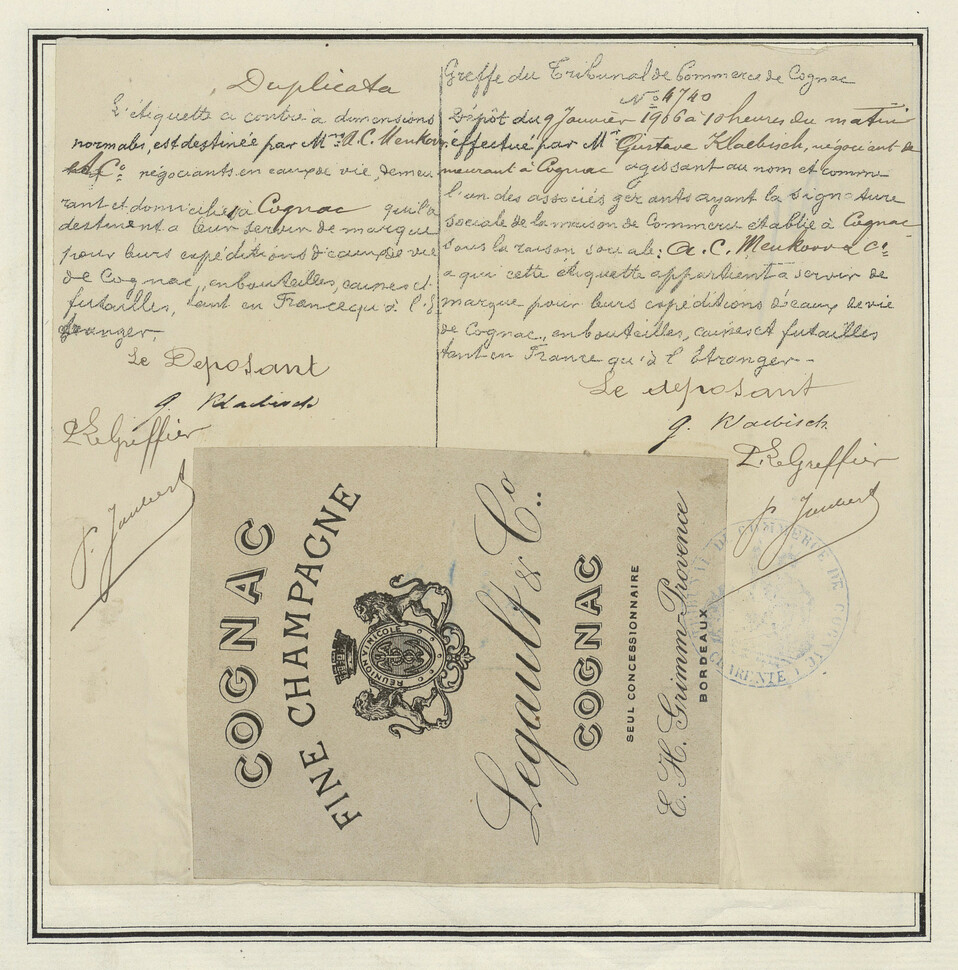 Duplicata
L'étiquette ci contre à dimensions
normales, est destinée par Mrs A.C. Meukow
& Co négociants en eaux de vie, demeu
rant et domiciliés à Cognac qu'ils
destinent a leur servir de marque
pour leurs expéditions d'eaux de vie
de Cognac, en bouteilles, caisses et
futailles, tant en France qu'à l'E
tranger.
Le Deposant
G. Klaebisch
P. Le Greffier
P. Joubert
Greffe du Tribunal de Commerce de Cognac
No 4740
Dépôt du 9 Janvier 1906 à 10 heures du matin
éffectué, par Mr Gustave Klaebisch, négociant de
meurant à Cognac agissant au nom et comme
l'un des associés gérants ayant la signature
sociale de la maison de Commerce établie à Cognac
sous la raison sociale: A.C. Meukow & Co
a qui cette étiquette appartient à servir de
marque pour leurs expéditions d'eaux de vie
de Cognac, en bouteilles, caisses et futailles
tant en France qu'à l'Etranger -
Le deposant
G. Klaebisch
P. Le Greffier
P. Joubert
COGNAC
FINE CHAMPAGNE
REUNION VINICOLE
Legault & Co.
COGNAC
SEUL CONCESSIONNAIRE
E. H. Grimm-Provence
BORDEAUX
TRIBUNAL DE COMMERCE DE COGNAC
CHARENTE